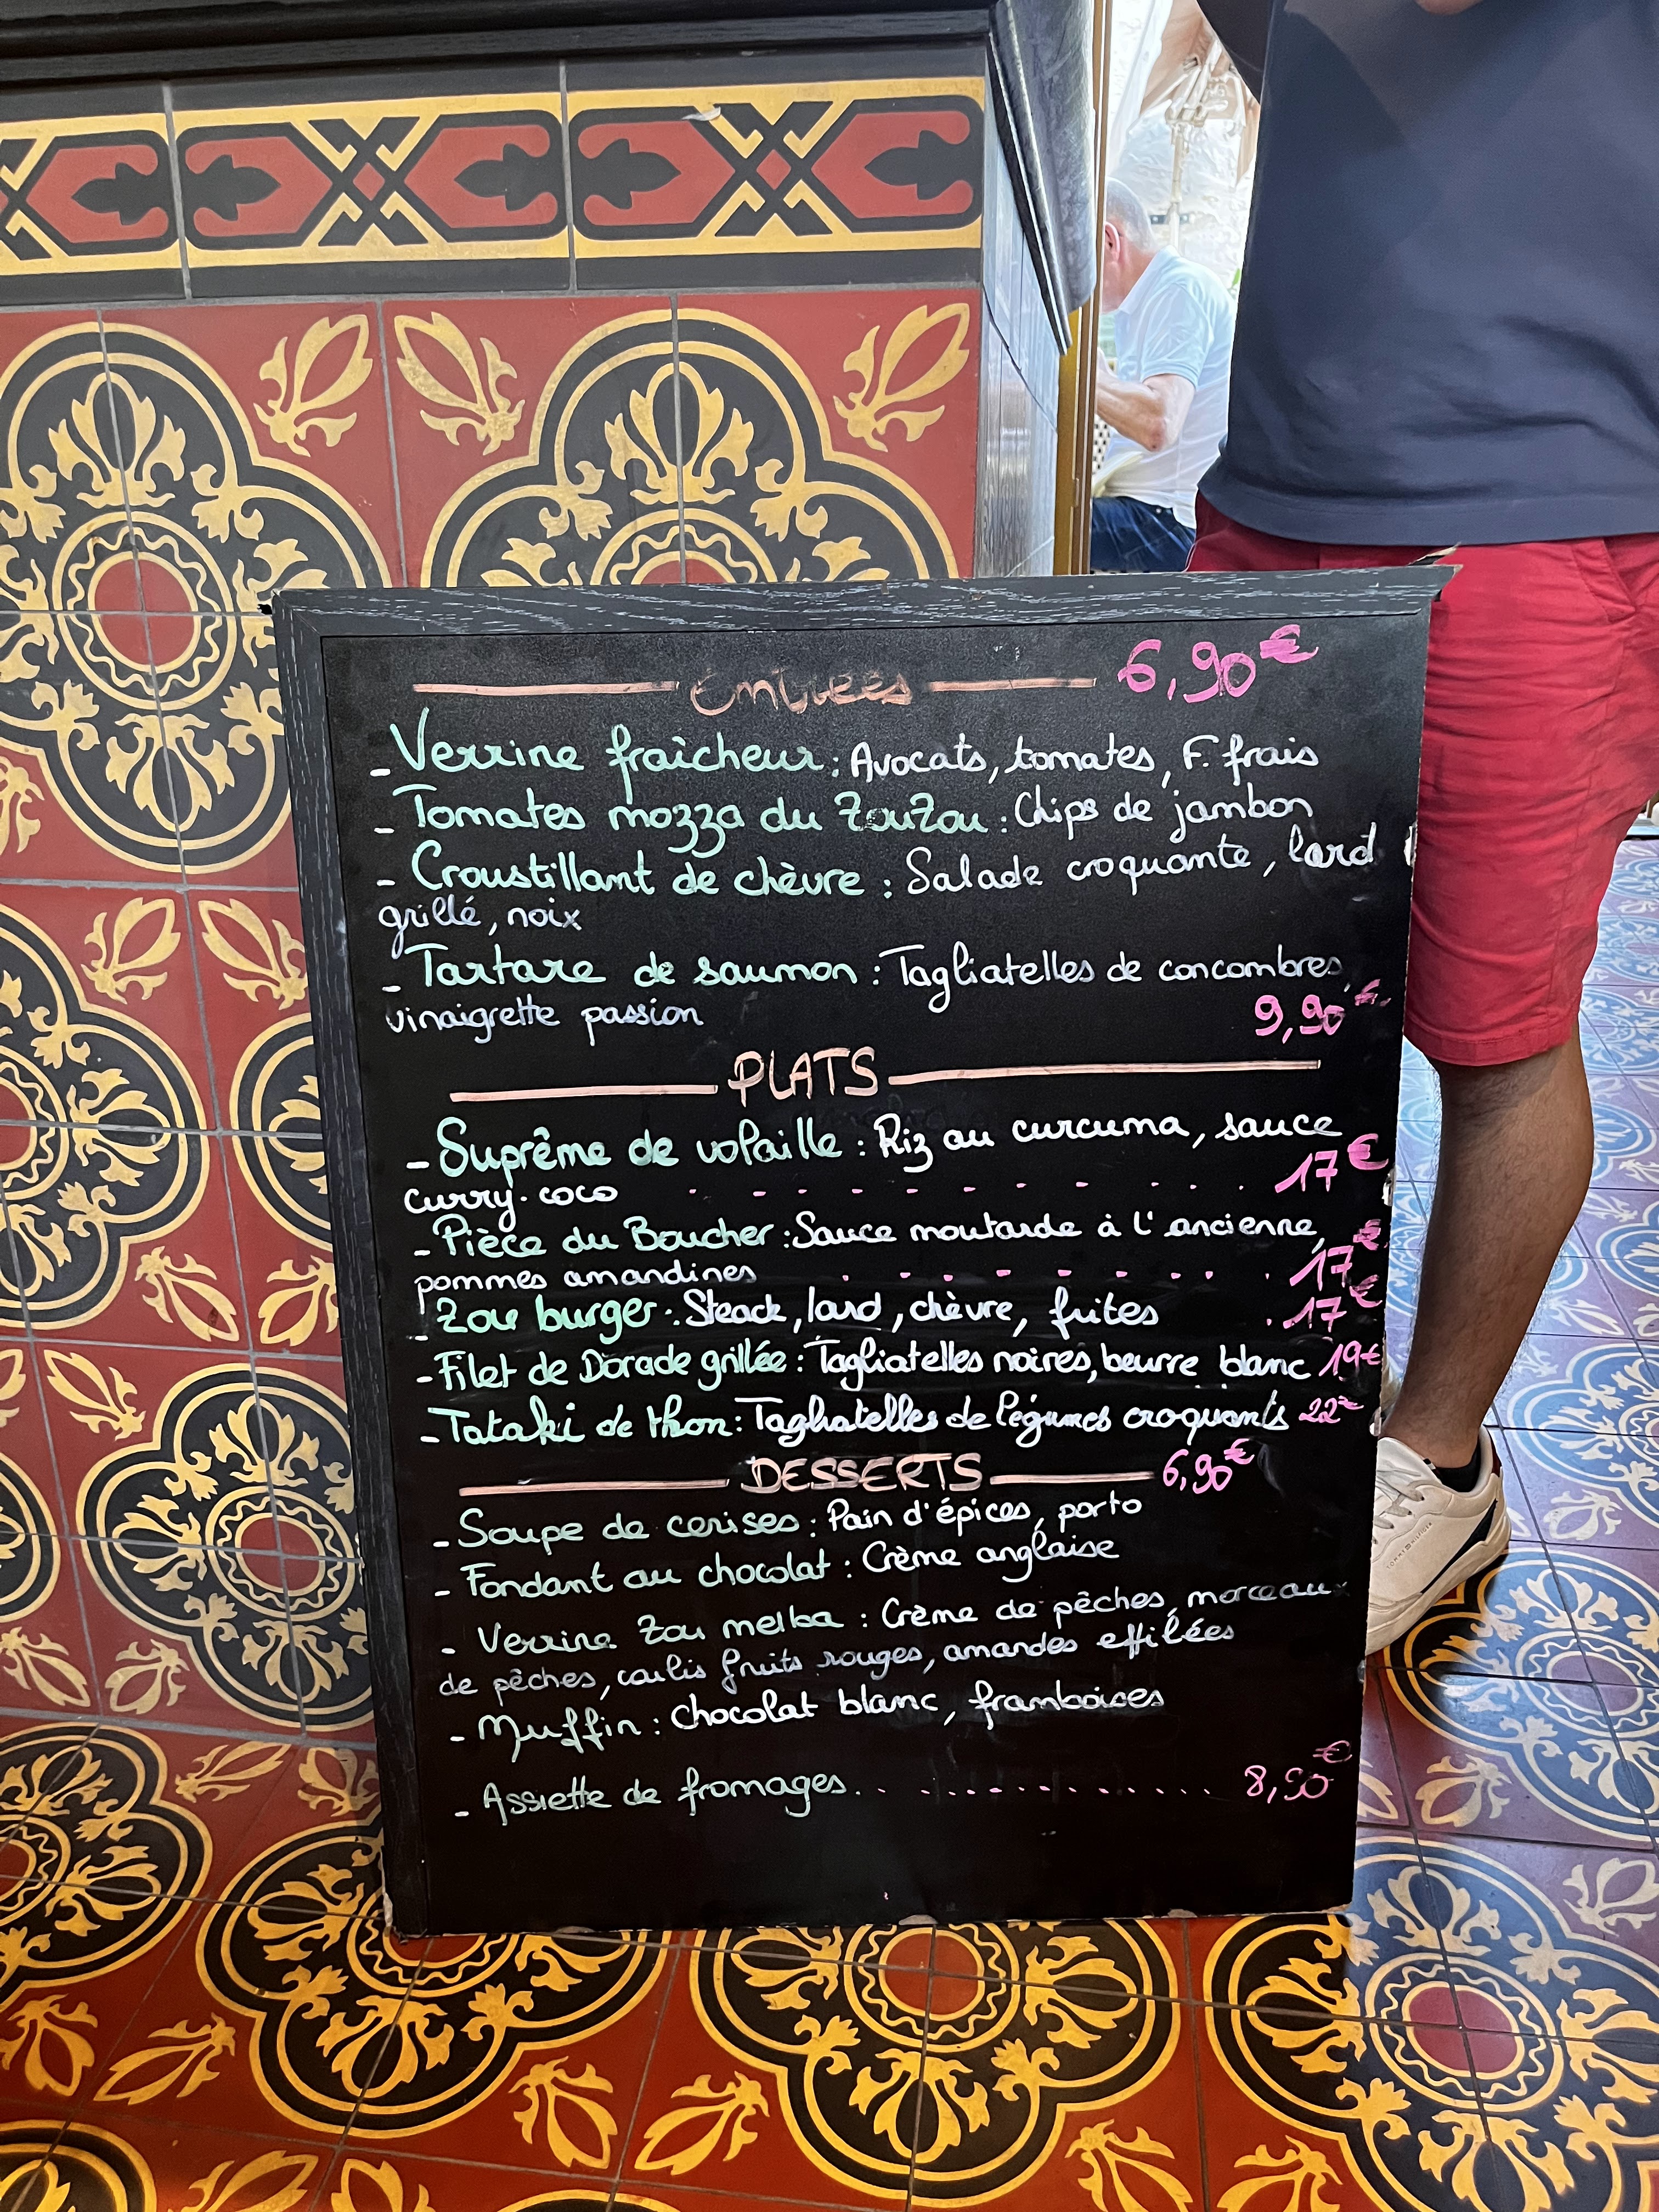 Entrées 6,90€
- Verrine fraîcheur : Avocats, tomates, F. frais
- Tomates mozza du ZouZou : Chips de jambon
- Croustillant de chèvre : Salade croquante, lard
grillé, noix
- Tartare de saumon : Tagliatelles de concombres
vinaigrette passion 9,90€
PLATS
- Suprême de volaille : Riz au curcuma, sauce
curry-coco 17€
- Pièce du Boucher : Sauce moutarde à l'ancienne,
pommes amandines 17€
- Zou burger : Steack, lard, chèvre, frites 17€
- Filet de Dorade grillée : Tagliatelles noires, beurre blanc 19€
- Tataki de thon : Tagliatelles de légumes croquants 22€
DESSERTS 6,90€
- Soupe de cerises : Pain d'épices, porto
- Fondant au chocolat : Crème anglaise
- Verrine Zou melba : Crème de pêches, morceaux
de pêches, coulis fruits rouges, amandes effilées
- Muffin : chocolat blanc, framboises
- Assiette de fromages 8,50€
TOMMY HILFIGER